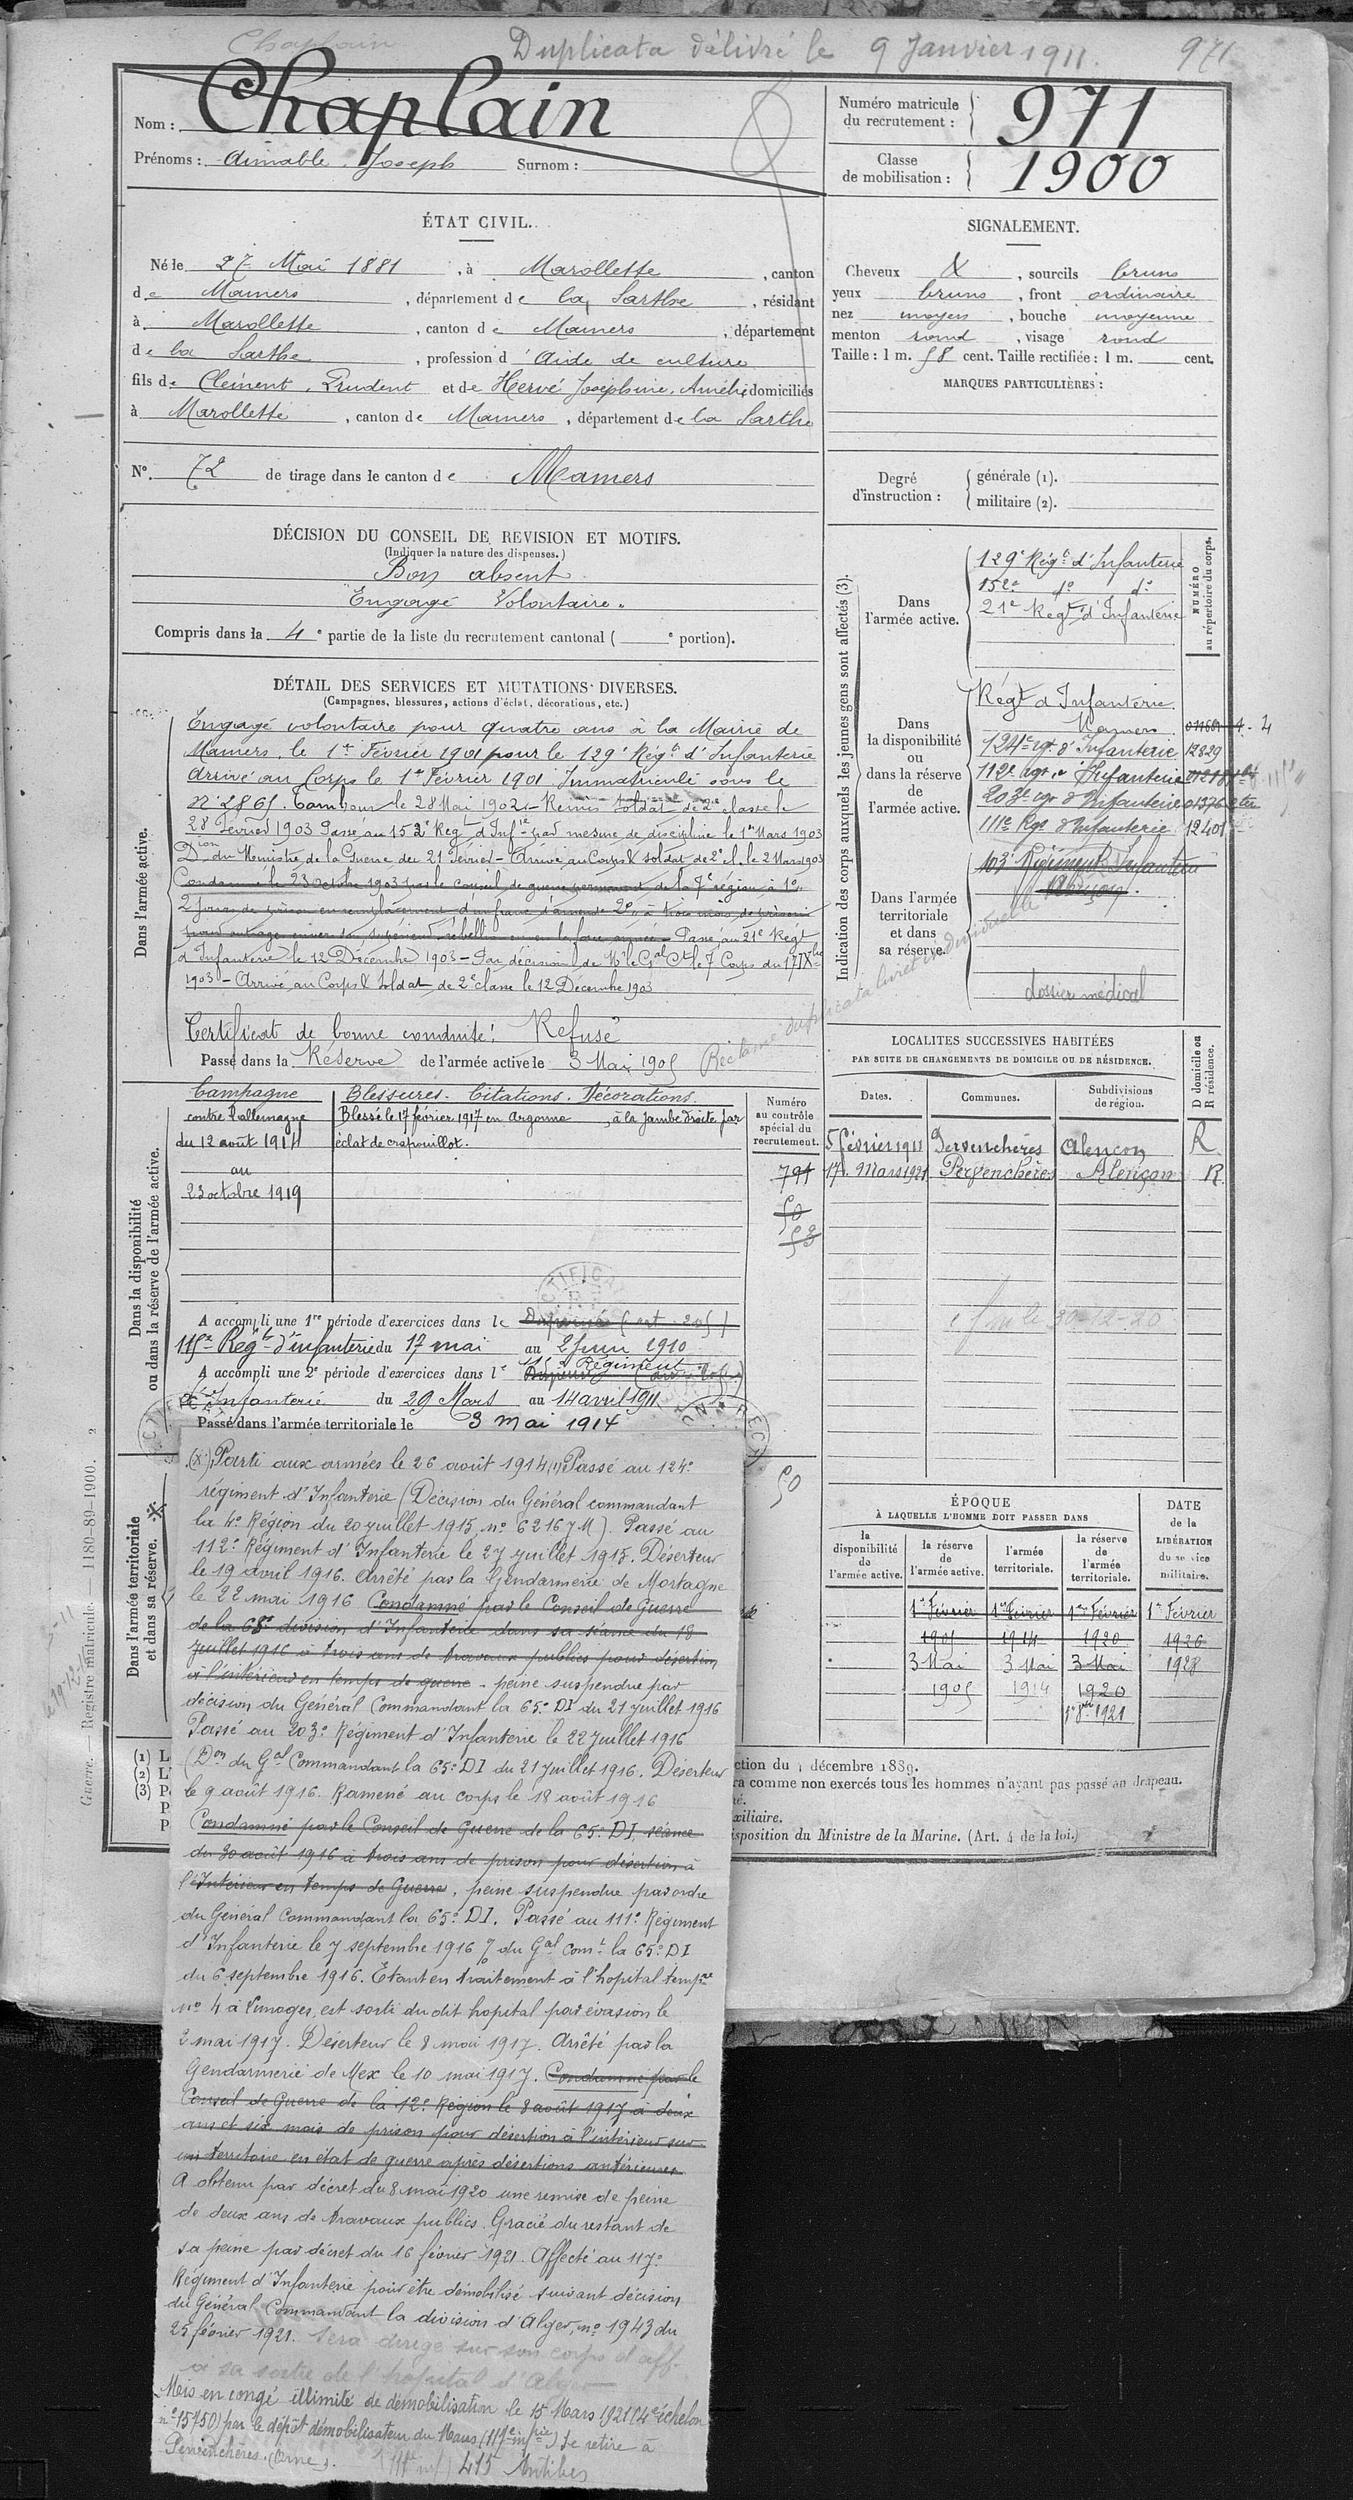 Chaplain
Duplicata délivré le 9 Janvier 1911.
971
Nom : Chaplain
Prénoms : Aimable Joseph Surnom :
Numéro matricule du recrutement : 971
Classe de mobilisation : 1900
ÉTAT CIVIL.
Né le 27 Mai 1881, à Marollette, canton
de Mamers, département de la Sarthe, résidant
à Marollette, canton de Mamers, département
de la Sarthe, profession d'Aide de culture
fils de Clément, Prudent et de Hervé Joséphine, Amélie domiciliés
à Marollette, canton de Mamers, département de la Sarthe
N° 72 de tirage dans le canton de Mamers
SIGNALEMENT.
Cheveux X, sourcils bruns
yeux bruns, front ordinaire
nez moyen, bouche moyenne
menton rond, visage rond
Taille : 1 m. 58 cent. Taille rectifiée : 1 m. cent.
MARQUES PARTICULIÈRES :
Degré d'instruction :
générale (1).
militaire (2).
DÉCISION DU CONSEIL DE REVISION ET MOTIFS.
(Indiquer la nature des dispenses.)
Bon absent
Engagé Volontaire.
Compris dans la 4e partie de la liste du recrutement cantonal ( e portion).
DÉTAIL DES SERVICES ET MUTATIONS DIVERSES.
(Campagnes, blessures, actions d'éclat, décorations, etc.)
Dans l'armée active.
Engagé volontaire pour quatre ans à la Mairie de
Mamers, le 1er Février 1901 pour le 129e Régt d'Infanterie
Arrivé au Corps le 1er Février 1901 Immatriculé sous le
N° 2865. Tambour le 28 Mai 1902. Remis soldat de 2e classe le
28 Février 1903 Passé au 152e Régt d'Infie par mesure de discipline le 1er Mars 1903
Don du Ministre de la Guerre du 21 Février - Arrivé au Corps & soldat de 2e cl. le 2 Mars 1903
Condamné le 23 Octobre 1903 par le conseil de guerre permanent de la 7e région à 1°
2 jours de prison en remplacement d'un franc d'amende 2° à trois mois de prison
pour outrage envers son supérieur rébellion envers la force armée - Passé au 21e Régt
d'Infanterie le 12 Décembre 1903 - Par décision de Mr le Gal Ct le 7e Corps du 17 IXbre
1903 - Arrivé au Corps & Soldat de 2e classe le 12 Décembre 1903
Certificat de bonne conduite : Refusé
Passé dans la Réserve de l'armée active le 3 Mai 1905
Réclamé duplicata livret individuel
Indication des corps auxquels les jeunes gens sont affectés (3).
NUMÉRO au répertoire du corps.
Dans l'armée active.
129e Régt d'Infanterie
152e do do
21e Régt d'Infanterie
Dans la disponibilité ou dans la réserve de l'armée active.
Régt d'Infanterie
Mamers
124e rgt d'Infanterie 12829
112e rgt d'Infanterie
203e rgt d'Infanterie
111e Rgt d'Infanterie 12401
Dans l'armée territoriale et dans sa réserve.
103e Régiment Infanterie
Alençon.
dossier médical
Dans la disponibilité ou dans la réserve de l'armée active.
Campagne
contre l'allemagne
du 12 août 1914
au
23 octobre 1919
Blessures. Citations. Décorations.
Blessé le 17 février 1917 en Argonne, à la jambe droite par
éclat de crapouillot.
Numéro au contrôle spécial du recrutement.
791
50
53
50
LOCALITES SUCCESSIVES HABITÉES
PAR SUITE DE CHANGEMENTS DE DOMICILE OU DE RÉSIDENCE.
Dates. Communes. Subdivisions de région. D domicile ou R résidence.
5 février 1911 Pervenchères Alençon R
17 Mars 1921 Pervenchères Alençon R
30-12-20
A accompli une 1re période d'exercices dans le
115e Régt d'infanterie du 17 mai au 2 Juin 1910
A accompli une 2e période d'exercices dans le 115e Régiment
d'Infanterie du 29 Mars au 14 avril 1911
Passé dans l'armée territoriale le 3 mai 1914
Dans l'armée territoriale et dans sa réserve.
(X) Parti aux armées le 26 août 1914. Passé au 124e
régiment d'Infanterie (Décision du Général commandant
la 4e Région du 20 juillet 1915, n° 6216 7 M). Passé au
112e Régiment d'Infanterie le 27 juillet 1915. Déserteur
le 19 avril 1916. Arrêté par la Gendarmerie de Mortagne
le 22 mai 1916 Condamné par le Conseil de Guerre
de la 65e division d'Infanterie dans sa séance du 18
Juillet 1916 à trois ans de travaux publics pour désertion
à l'intérieur en temps de guerre - peine suspendue par
décision du Général Commandant la 65e DI du 21 juillet 1916
Passé au 203e Régiment d'Infanterie le 22 juillet 1916
(Don du Gal Commandant la 65e DI du 21 juillet 1916. Déserteur
le 9 août 1916. Ramené au corps le 18 août 1916
Condamné par le Conseil de Guerre de la 65e DI, séance
du 30 août 1916 à trois ans de prison pour désertion à
l'Intérieur en temps de Guerre, peine suspendue par ordre
du Général Commandant la 65e DI. Passé au 111e Régiment
d'Infanterie le 7 septembre 1916 du Gal Comt la 65e DI
du 6 septembre 1916. Etant en traitement à l'hopital tempre
n° 4 à Limoges, est sorti du dit hopital par évasion le
2 mai 1917. Déserteur le 8 mai 1917. Arrêté par la
Gendarmerie de Mex le 10 mai 1917. Condamné par le
Conseil de Guerre de la 12e Région le 8 août 1917 à deux
ans et six mois de prison pour désertion à l'intérieur sur
un territoire en état de guerre après désertions antérieures
A obtenu par décret du 8 mai 1920 une remise de peine
de deux ans de travaux publics. Gracié du restant de
sa peine par décret du 16 février 1921. Affecté au 117e
Régiment d'Infanterie pour être démobilisé suivant décision
du Général Commandant la division d'Alger, n° 1943 du
25 février 1921. Sera dirigé sur son corps d'aff.
à sa sortie de l'hopital d'Alger
Mis en congé illimité de démobilisation le 15 Mars 1921 (4e échelon
n° 15750) par le dépôt démobilisateur du Mans (117e infrie) Se retire à
Pervenchères. (Orne). (111e inf) 415 Antibes
ÉPOQUE
À LAQUELLE L'HOMME DOIT PASSER DANS
la disponibilité de l'armée active.
la réserve de l'armée active.
l'armée territoriale.
la réserve de l'armée territoriale.
DATE de la LIBÉRATION du service militaire.
1er Février 1er Février 1er Février 1er Février
1905 1914 1920 1926
3 Mai 3 Mai 3 Mai 1928
1905 1914 1920
1er 8bre 1921
(1) L
(2) L'
(3) P
P
P
ction du décembre 1889.
ra comme non exercés tous les hommes n'ayant pas passé au drapeau.
é.
xiliaire.
isposition du Ministre de la Marine. (Art. 4 de la loi.)
Guerre. — Registre matricule. — 1180-89-1900. 2